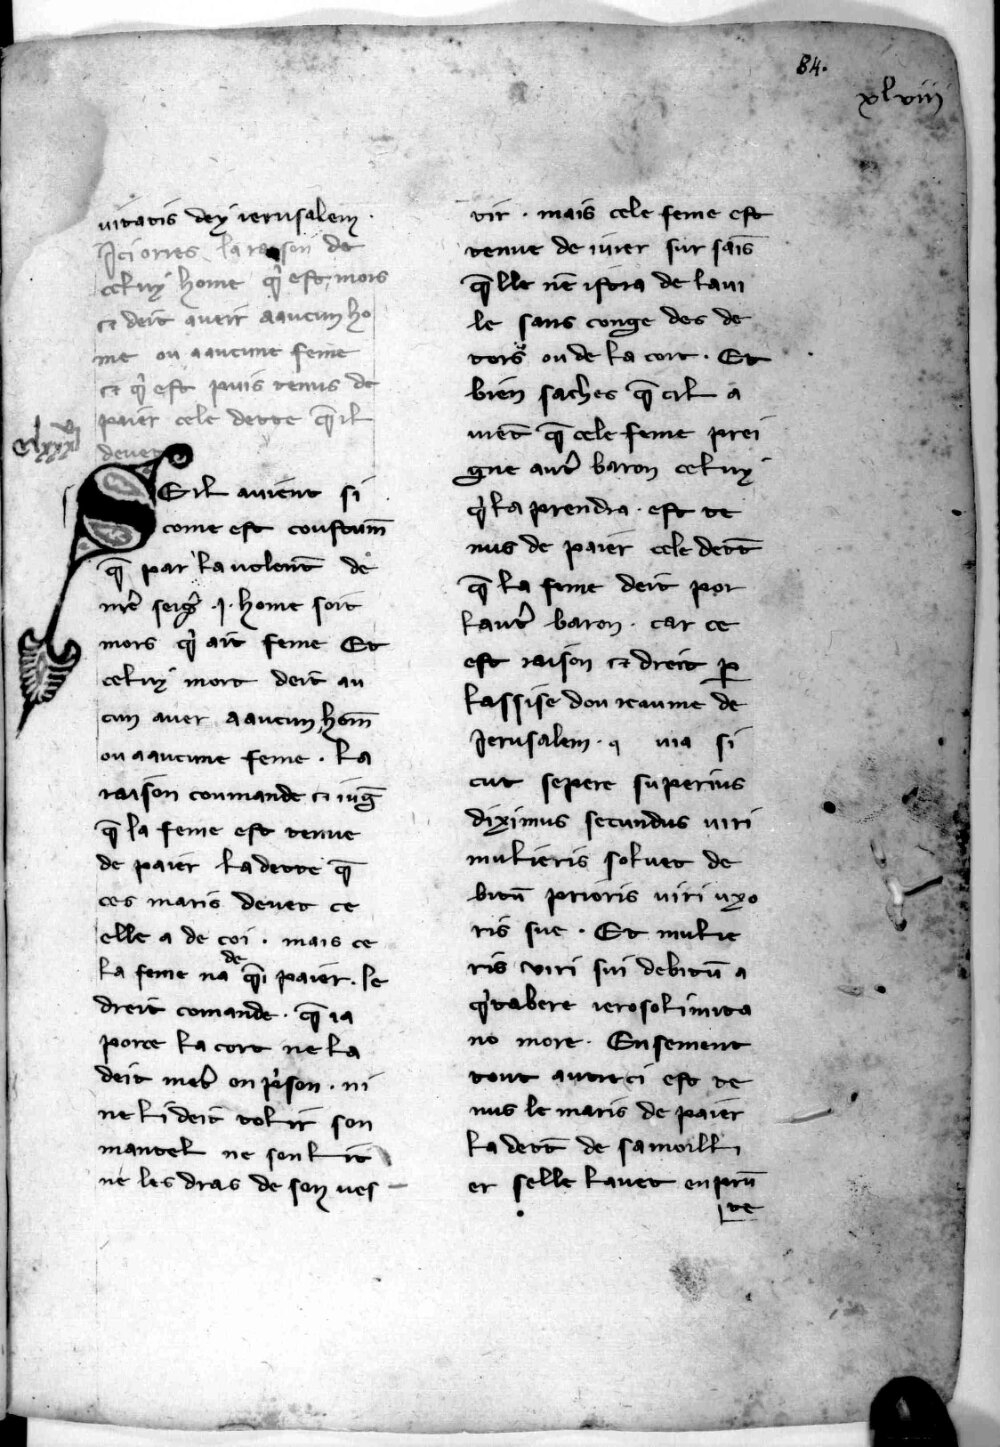 84.
xlviii
uitatis dey ierusalem.
Ici orres la raison de
celuy home q̇ est mors
et deit aueir a aucun ho
me ou a aucune feme
et q̇ est puis tenus de
paier cele dette q̄ il
deuet
S Eil auient si
come est coustum̄
q̄ par la volent̄ de
nr̄e seigr̄ .j. home soit
mors q̇ ait feme Et
celuy mort deit au
cun auer a aucun hom̄
ou a aucune feme. la
raison coumande et iuḡ
q̄ la feme est tenue
de paier la dette q̄
ces maris deuet ce
elle a de coi. mais ce
la feme na de q̄i paier. le
dreit comande. q̄ ia
porce la cort ne la
deit metr̄ en ṗson. ni
ne li deit tolir son
mantel ne son lit
ne les dras de son ues
tir. mais cele feme est
tenue de iurer sur sais̄
q̄lle nē istra de la ui
le sans conge des de
tors ou de la cort. Et
bien saches q̄ cil a
uiēt q̄ cele feme prei
gne autr̄ baron celuy
q̇ la prendra. est te
nus de paier cele dett̄
q̄ la feme deit por
lautr̄ baron. car ce
est raison et dreit p̱
lassise dou reaume de
Ierusalem. q uia si
cut sepere superius
diximus secundus uiri
mulieris soluet de
bitū prioris uiri uxo
ris sue. Et mulie
ris viri sui debitū a
q̇tabere ierosolimita
no more. Ensement
tout autreci est te
nus le maris de paier
la dett̄ de sa moilli
er selle lauet enprū
te